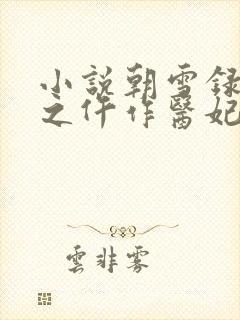 小説朝雪録
之仵作醫妃
雲非霧